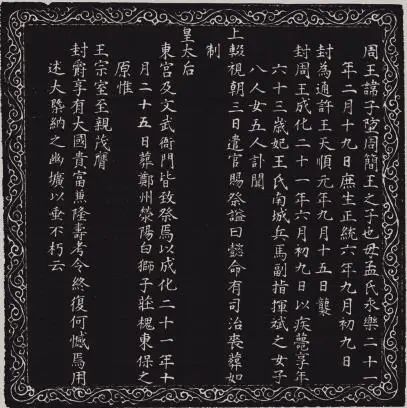 周王諱子埅周簡王之子也母孟氏永樂二十一
年二月十九日庶生正統六年九月初九日
封為通許王天順元年九月十五日襲
封周王成化二十一年六月初九日以疾薨享年
六十三歲妃王氏南城兵馬副指揮斌之女子
八人女五人訃聞
上輟視朝三日遣官賜祭諡曰懿命有司治喪葬如
制
皇太后
東宮及文武衙門皆致祭焉以成化二十一年十
月二十五日葬鄭州滎陽白獅子莊槐東保之
原惟
王宗室至親茂膺
封爵享有大國貴富兼隆壽考令終復何憾焉用
述大槩納之幽壙以垂不朽云